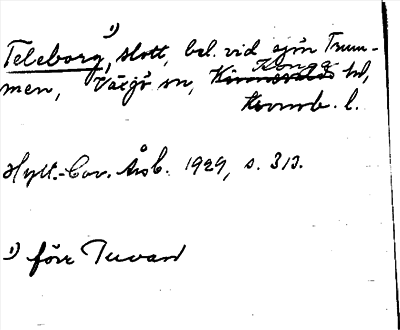 1)
Teleborg, slott, bel. vid sjön Trum-
men, Växjö sn, Konga hd,
Kronob. l.
Hylt.-Cav. Årsb. 1929, s. 313.
1) förr Tuvan